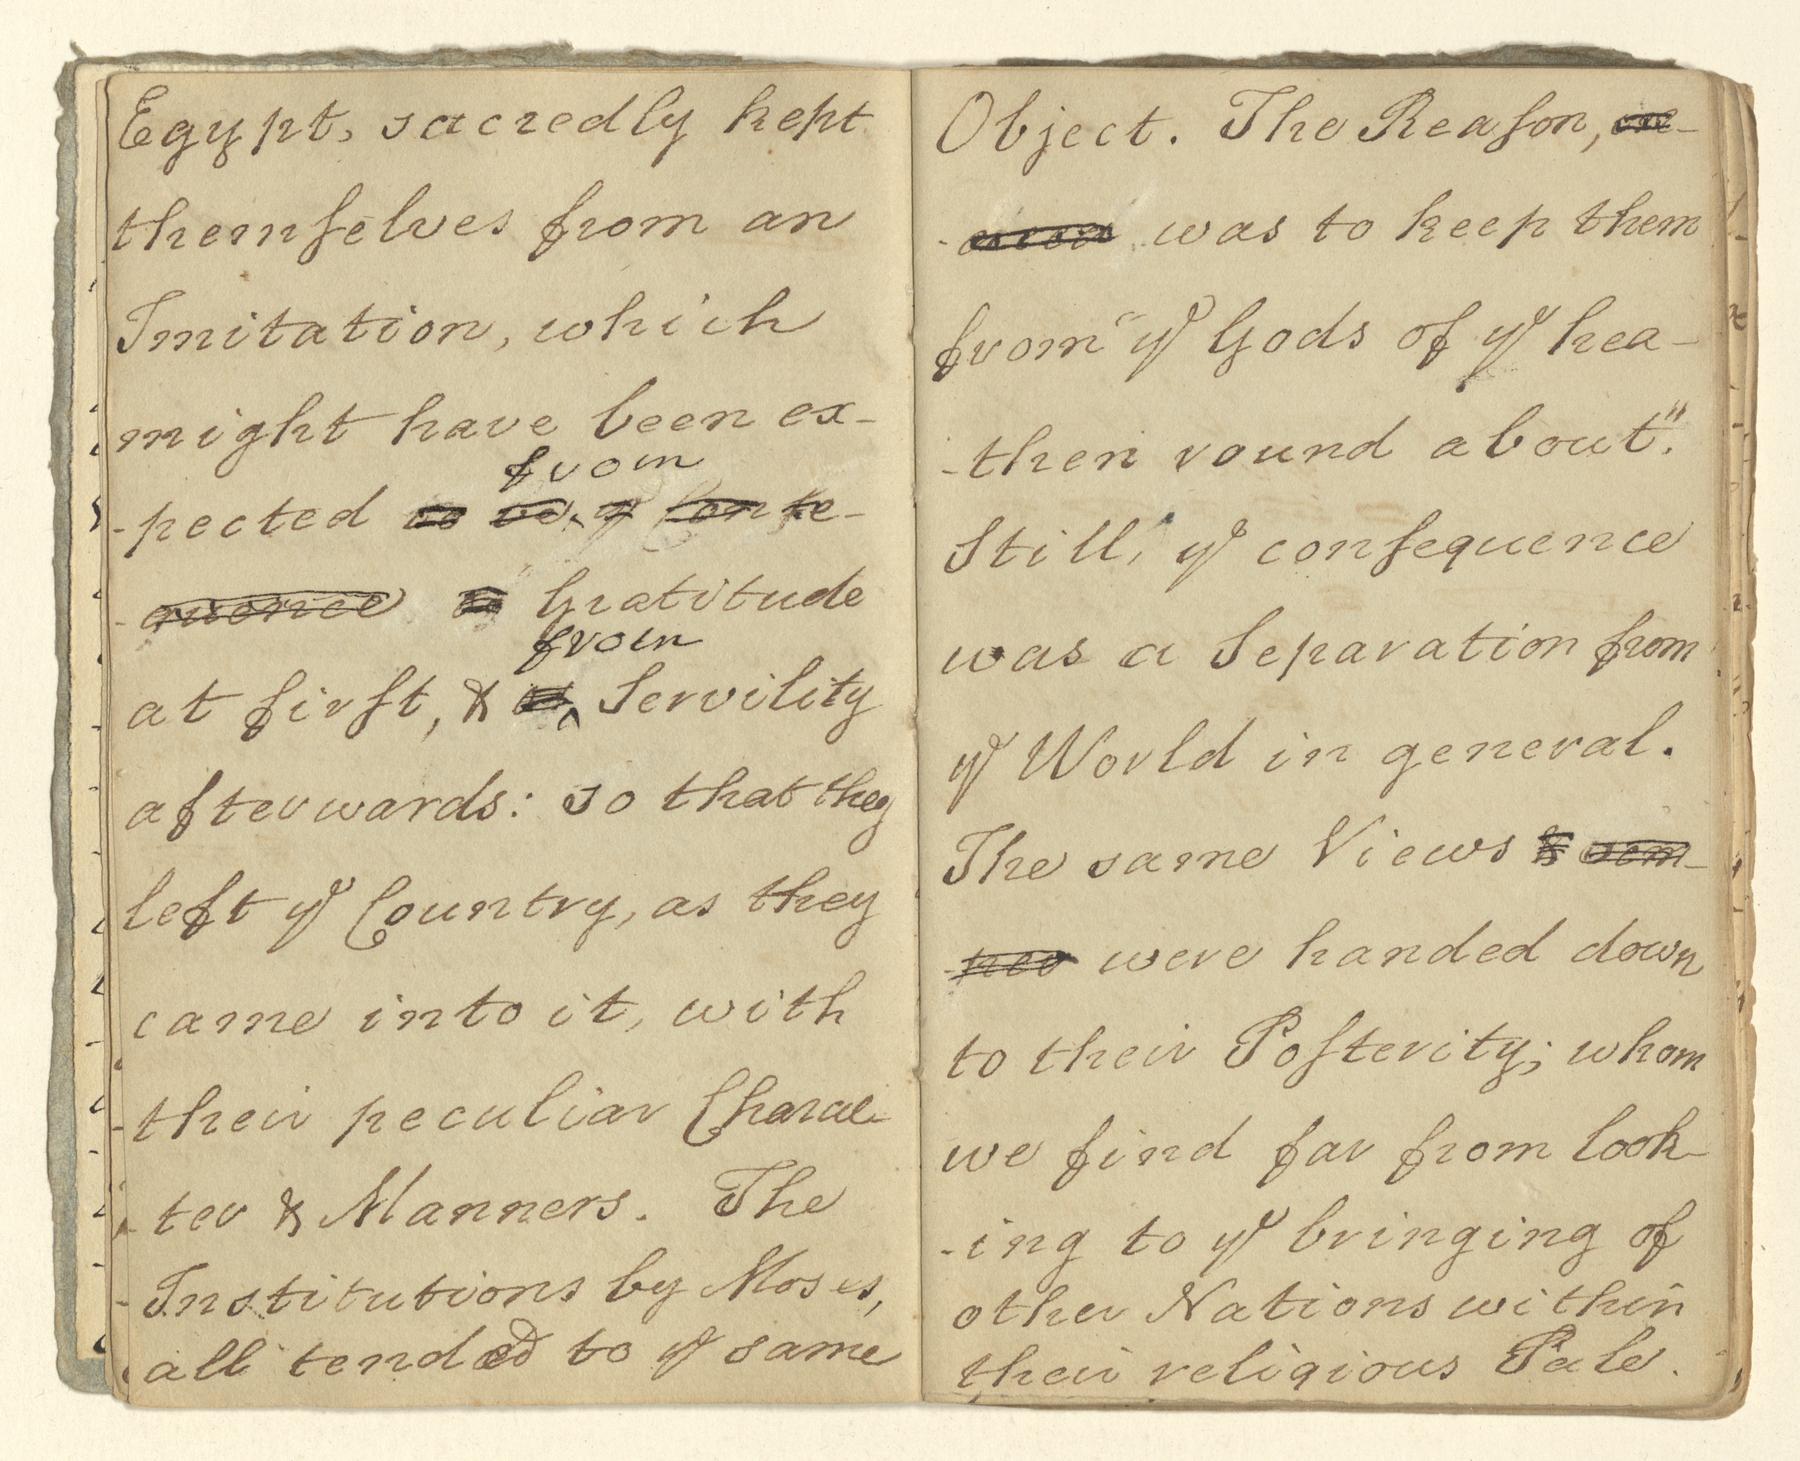 Egypt, sacredly kept
themſelves from an
Imitation, which
might have been ex-
from
-pected to be, ye Conse-
-quence to Gratitude
from
at firſt, & to Servility
afterwards: so that they
left ye Country, as they
came into it, with
their peculiar Charac-
-ter & Manners. The
-Institutions by Moses,
all tended to ye same
Object. The Reaſon,
was to keep them
from "ye Gods of ye hea-
-then round about".
Still, ye conſequence
was a Separation from
ye World in general.
The same Views &
were handed down
to their Poſterity; whom
we find far from look-
-ing to ye bringing of
other Nations within
their religious Pale.